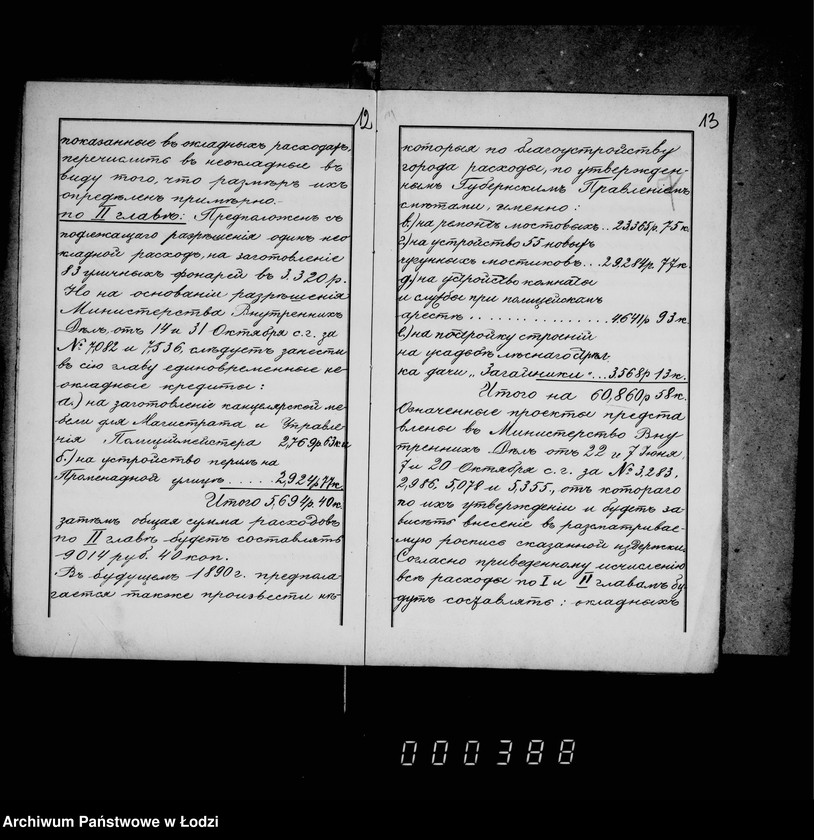 12
показанные въ окладныхъ расходахъ,
перечислить въ неокладные въ
виду того, что размѣръ ихъ
опредѣленъ примѣрно.-
по II главѣ: Предположенъ съ
подлежащаго разрѣшенія одинъ нео
кладной расходъ, на заготовленіе
83 уличныхъ фонарей въ 3.320 р.
Но на основаніи разрѣшенія
Министерства Внутреннихъ
Дѣлъ, отъ 14 и 31 Октября с.г. за
№ 7,082 и 7,536, слѣдуетъ занести
въ сію главу единовременные не
окладные кредиты:
а.) на заготовленіе канцелярской ме
бели для Магистрата и Управле
нія Полиціймейстера 2,769 р 63 к и
б.) на устройство перилъ на
Променадной улицѣ ...... 2,924 р 77 к.
Итого 5,694 р. 40 к.
затѣмъ общая сумма расходовъ
по II главѣ будетъ составлять
9014 руб. 40 коп.
Въ будущемъ 1890 г. предпола-
гается также произвести нѣ-
13
которыя по благоустройству
города расходы, по утвержден-
нымъ Губернскимъ Правленіемъ
смѣтами, именно:
в.) на ремонтъ мостовыхъ... 23,565 р. 75 к.
г.) на устройство 55 новыхъ
чугунныхъ мостиковъ... 29,284 р. 77 к.
д.) на устройство комнаты
и службы при полицейскомъ
арестѣ ................ 4641 р 93 к
е.) на постройку строеній
на усадьбѣ лѣснаго
ка дачи „Загайники"... 3568 р 13 к.
Итого на 60,860 р 58 к.
Означенные проекты предста
влены въ Министерство Вну
треннихъ Дѣлъ отъ 22 и 7 Іюня,
7 и 20 Октября с.г. за № 3,283,
2,986, 5,078 и 5,355., отъ котораго
по ихъ утвержденіи и будетъ за
висѣть внесеніе въ разсматривае-
мую роспись сказанной издержки.
Согласно приведенному исчисленію
всѣ расходы по I и II главамъ бу-
дутъ составлять: окладныхъ
000388
Archiwum Państwowe w Łodzi